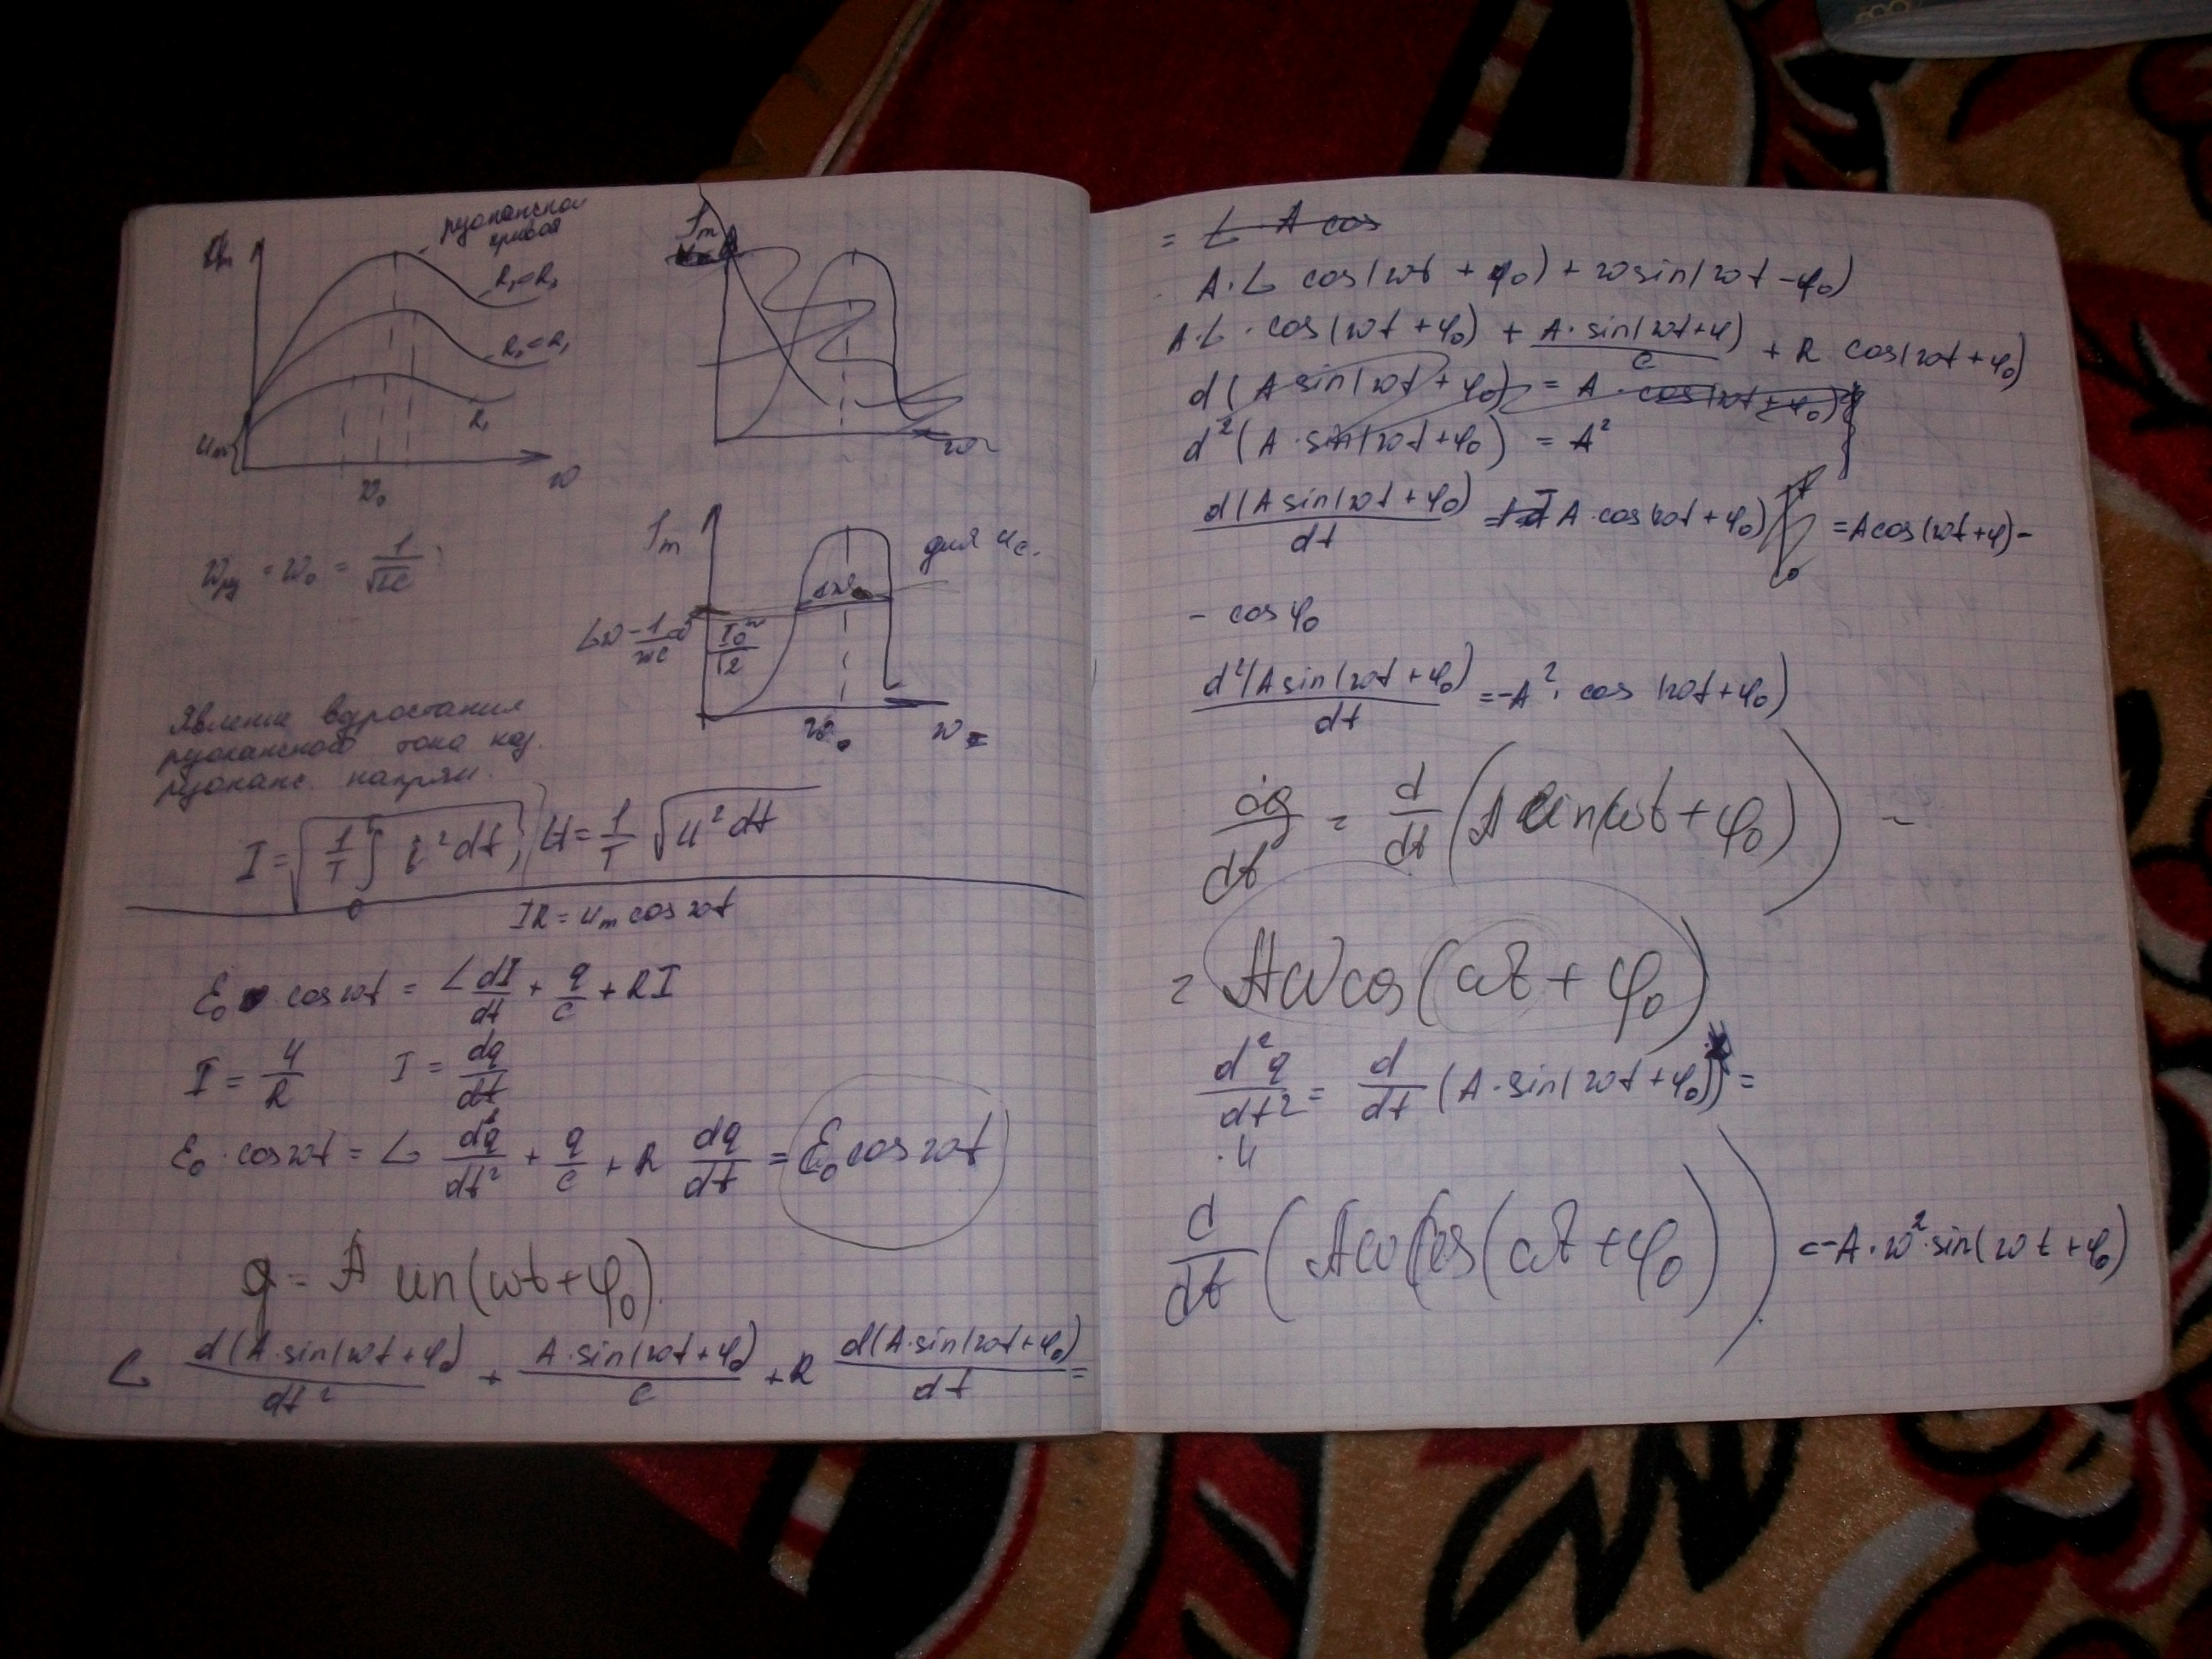 резонансная
кривая
R₂<R₁
R₁
uₘ
ω
ω₀
Iₘ
ω
ω_рез = ω₀ = 1/√LC
Iₘ
для u_c.
Lω - 1/ωC
I₀/√2
ω₀
ω
Явление возростания
резонансного тока наз.
резонанс. напряж.
I = √(1/T ∫₀ i² dt); U = 1/T √(u² dt)
IR = uₘ cos ωt
ℰ₀ · cos ωt = L dI/dt + q/c + RI
I = U/R I = dq/dt
ℰ₀ · cos ωt = L d²q/dt² + q/c + R dq/dt = ℰ₀ cos ωt
q = A sin(ωt + φ₀).
L d(A·sin(ωt + φ₀)/dt² + A·sin(ωt + φ₀)/c + R d(A·sin(ωt + φ₀)/dt =
= L · A cos
A·L cos(ωt + φ₀) + ω sin(ωt - φ₀)
A·L · cos(ωt + φ₀) + A·sin(ωt + φ)/c + R cos(ωt + φ₀)
d(A sin(ωt + φ₀) = A · cos(ωt + φ₀)
d²(A · sin(ωt + φ₀) = A²
d(A sin(ωt + φ₀)/dt = A · cos(ωt + φ₀) = A cos(ωt + φ) -
- cos φ₀
d²(A sin(ωt + φ₀)/dt = -A² · cos(ωt + φ₀)
dq/dt = d/dt (A sin(ωt + φ₀)) =
= Aω cos(ωt + φ₀)
d²q/dt² = d/dt (A · sin(ωt + φ₀)) =
d/dt (Aω cos(ωt + φ₀)) = -A · ω² · sin(ωt + φ₀)